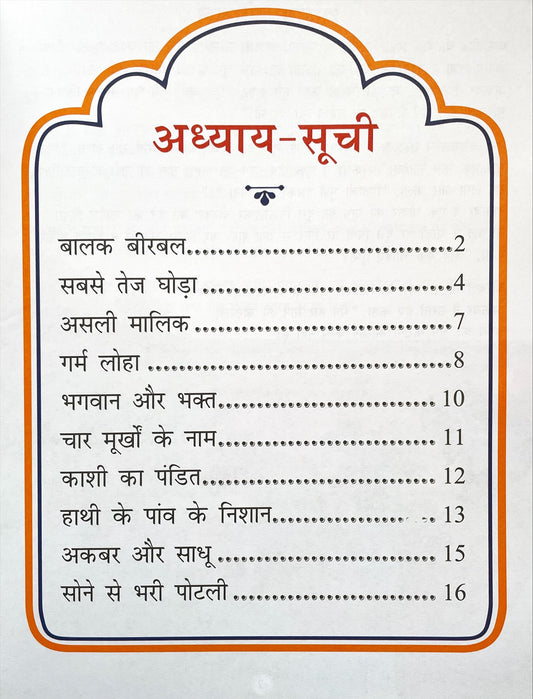 अध्याय-सूची
बालक बीरबल.......................................2
सबसे तेज घोड़ा.....................................4
असली मालिक......................................7
गर्म लोहा...........................................8
भगवान और भक्त................................. 10
चार मूर्खों के नाम................................. 11
काशी का पंडित................................... 12
हाथी के पांव के निशान......................... 13
अकबर और साधू................................. 15
सोने से भरी पोटली............................... 16